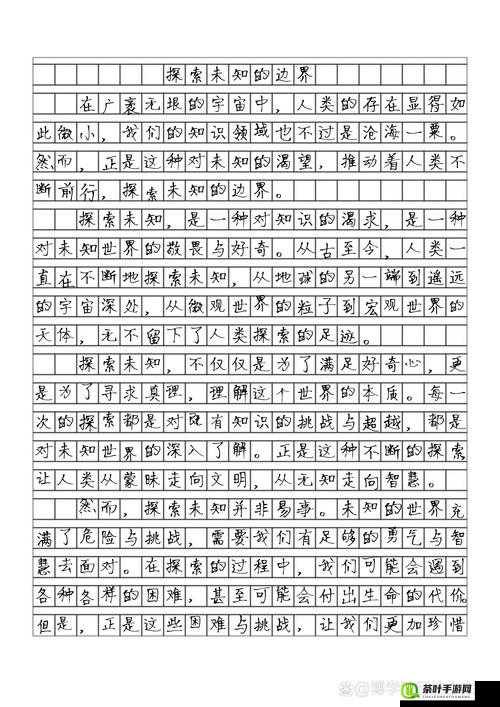 探索未知的边界
在广袤无垠的宇宙中，人类的存在显得如
此微小，我们的知识领域也不过是沧海一粟。
然而，正是这种对未知的渴望，推动着人类不
断前行，探索未知的边界。
探索未知，是一种对知识的渴求，是一种
对未知世界的敬畏与好奇。从古至今，人类一
直在不断地探索未知，从地球的另一端到遥远
的宇宙深处，从微观世界的粒子到宏观世界的
天体，无不留下了人类探索的足迹。
探索未知，不仅仅是为了满足好奇心，更
是为了寻求真理，理解这个世界的本质。每一
次的探索都是对既有知识的挑战与超越，都是
对未知世界的深入了解。正是这种不断的探索
让人类从蒙昧走向文明，从无知走向智慧。
然而，探索未知并非易事。未知的世界充
满了危险与挑战，需要我们有足够的勇气与智
慧去面对。在探索的过程中，我们可能会遇到
各种各样的困难，甚至可能会付出生命的代价。
但是，正是这些困难与挑战，让我们更加珍惜
茶叶手游网